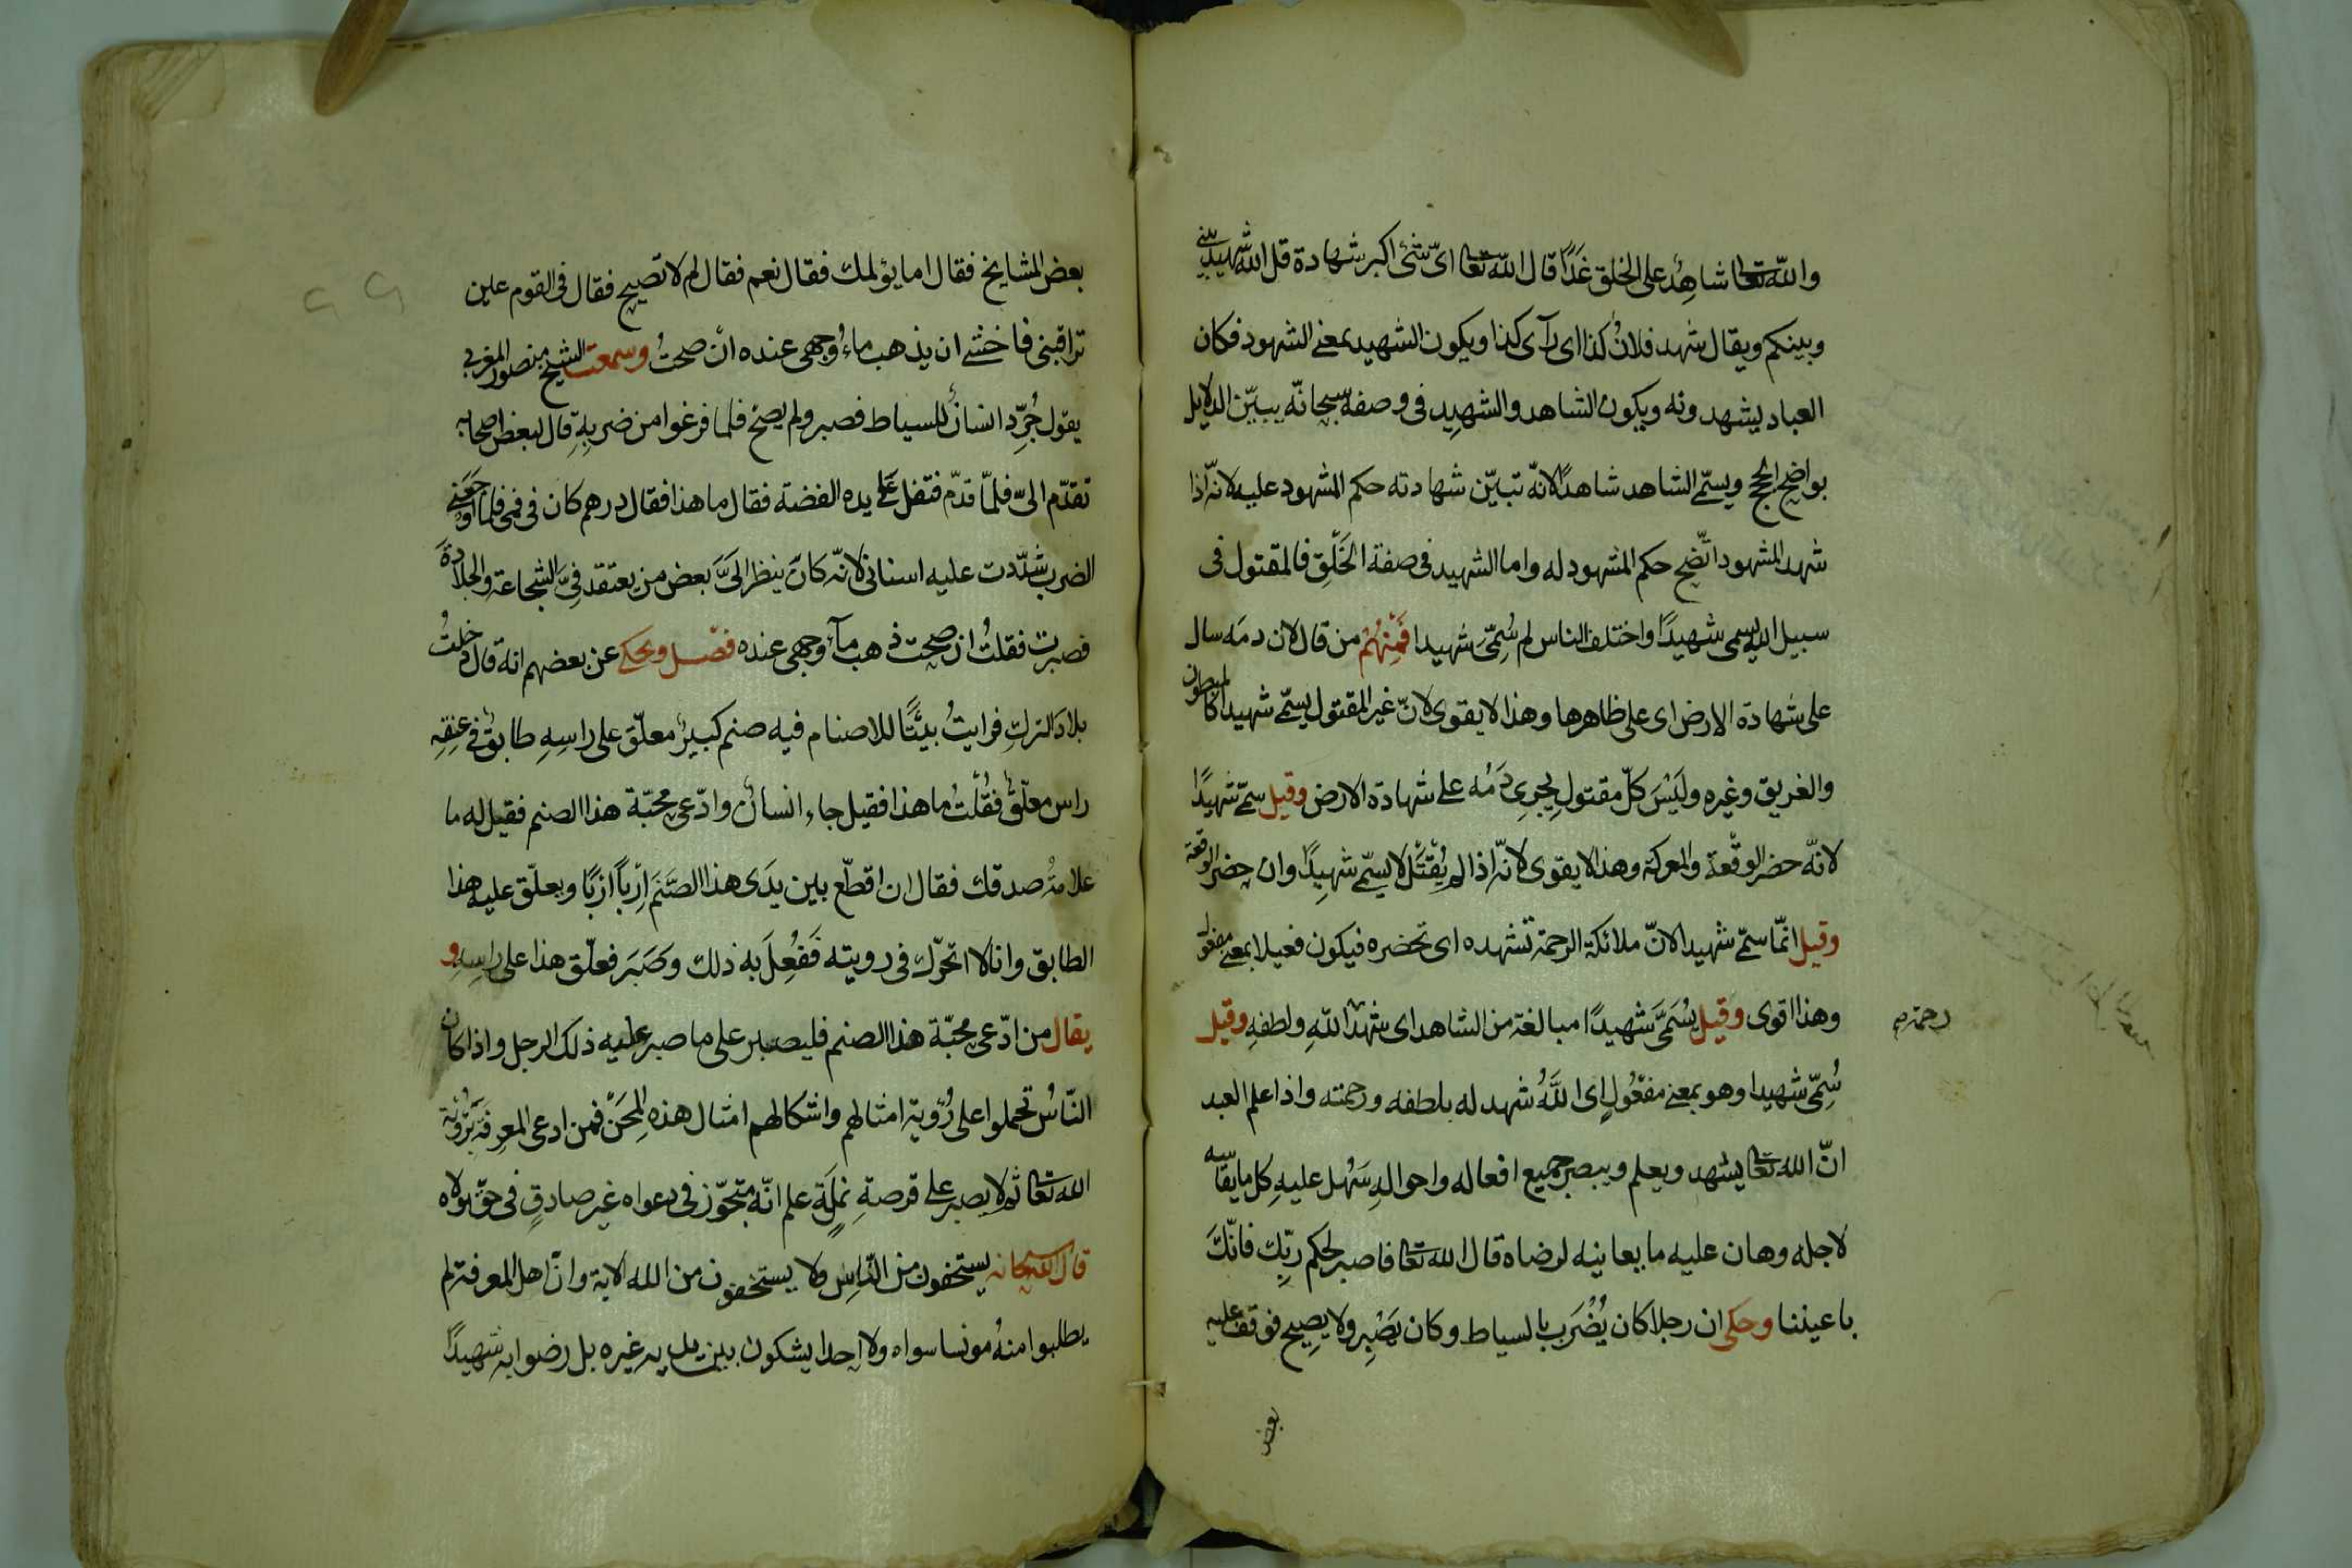 والله تعا شاهِدٌ على الخلق غَدًا قال الله تعا اىّ شئ اكبر شهادة قل الله شهيد بينى
وبينكم ويقال شهد فلانٌ كذا اى رآى كذا ويكون الشهيد بمعنى الشهود فكان
العباد يشهدونه ويكون الشاهد والشهيد فى وصفه سبحانّه يبيّن الدلايل
بواضح الحجج ويسمّى الشاهد شاهدًا لانّه تبيّن شهادته حكم المشهود عليه لانّه اذا
شهد المشهود اتّضح حكم المشهود له واما الشهيد فى صفة الخَلْقِ فالمقتول فى
سبيل الله يسمى شهيدًا واختلف الناس لم سُمِّىَ شهيدا فَمِنْهُمْ من قال لان دمَه سال
على شهادة الارض اى على ظاهرها وهذا لا يقوى لانّ غير المقتول يسمّى شهيدا كالمبطون
والغريق وغيره ولَيْسَ كلّ مقتولٍ يجرِى دَمُه على شهادة الارض وقيل سمّى شهيدًا
لانّه حضر الوقْعة والمعركة وهذا لا يقوى لانّه اذا لم يُقْتَل لا يسمّى شهيدًا وان حضر الوقعة
وقيل انّما سمّى شهيدا لانّ ملائكة الرحمة تشهده اى تحضره فيكون فعيلا بمعنى مفعول
وهذا اقوى وقيل يُسَمَّى شَهيدًا مبالغة من الشاهد اى شهد اللهِ ولطفهِ وقيل
رحمة صح
سُمِّى شهيدا وهو بمعنى مفعُولٍ اى اللَّهُ شهد له بلطفه ورحمته واذا علم العبد
انّ الله تعا يشهد ويعلم ويبصر جميع افعاله واحوالهِ سَهُل عليهِ كل ما يقاسيه
لاجله وهان عليه ما يعاينه لرضاه قال الله تعا فاصبر لحكم ربّك فانّكَ
باعيننا وحكى ان رجلا كان يُضْرَب بالسياط وكان يَصْبِر ولا يصِيح فوقف عليه
بعض
بعض المشايخ فقال اما يؤلمك فقال نعم فقال لم لا تصيح فقال فى القوم عين
تراقبنى فاخشى ان يذهب ماءُ وجهى عنده ان صحتُ وسمعت الشيخ منصور المغربى
يقول جُرِّد انسانٌ للسياط فصبر ولم يصح فلما فرغوا من ضربِهِ قال لبعض اصحابه
تقدّم الىّ فلمّا قدّم فتفل على يده الفضة فقال ما هذا فقال درهم كان فى فمى فلما اوجعنى
الضرب شدّدت عليه اسنانى لانّه كانَ ينظر الىَّ بعض من يعتقد فىَّ الشجاعة والجلادة
فصبرت فقلتُ ان صحت ذهب مآء وجهى عنده فصْل ويحكى عن بعضهم انه قال دخلتُ
بلادَ الترك فرايتُ بيتًا للاصنام فيه صنم كبيرٌ معلّق على راسِهِ طابقٌ فى عنقِهِ
راس معلّقٌ فقُلْتُ ما هذا فقيل جاء انسانٌ وادّعى محبّة هذا الصنم فقيل له ما
علامةُ صدقك فقال ان اقطّع بين يدَى هذا الصَّنَمَ اِرْبًا ارْبًا ويعلّق عليه هذا
الطابق وانا لا اتحرّك فى رويته فَفُعِلَ به ذلك وصَبَرَ فعلّق هذا على راسهِ و
يقال من ادّعى محبّة هذا الصنم فليصبر على ما صبر عليه ذلك الرجل واذا كان
النّاسُ تحملوا على رُؤية امثالهم واشكالهم امثال هذه المِحَنَ فمن ادعى المعرفَة برُؤْية
الله تعا ثم لا يصبر على قرصةِ نملَة علم انّه متجوّز فى دعواه غير صادقٍ فى حقّ مولاه
قال الله سبحانه يستخفون من النّاسِ ولا يستخفون من الله الاية وانّ اهل المعرفة لم
يطلبوا منهُ مونسا سواه ولا احدا يشكون بين يديه غيره بل رضوا به شهيدًا